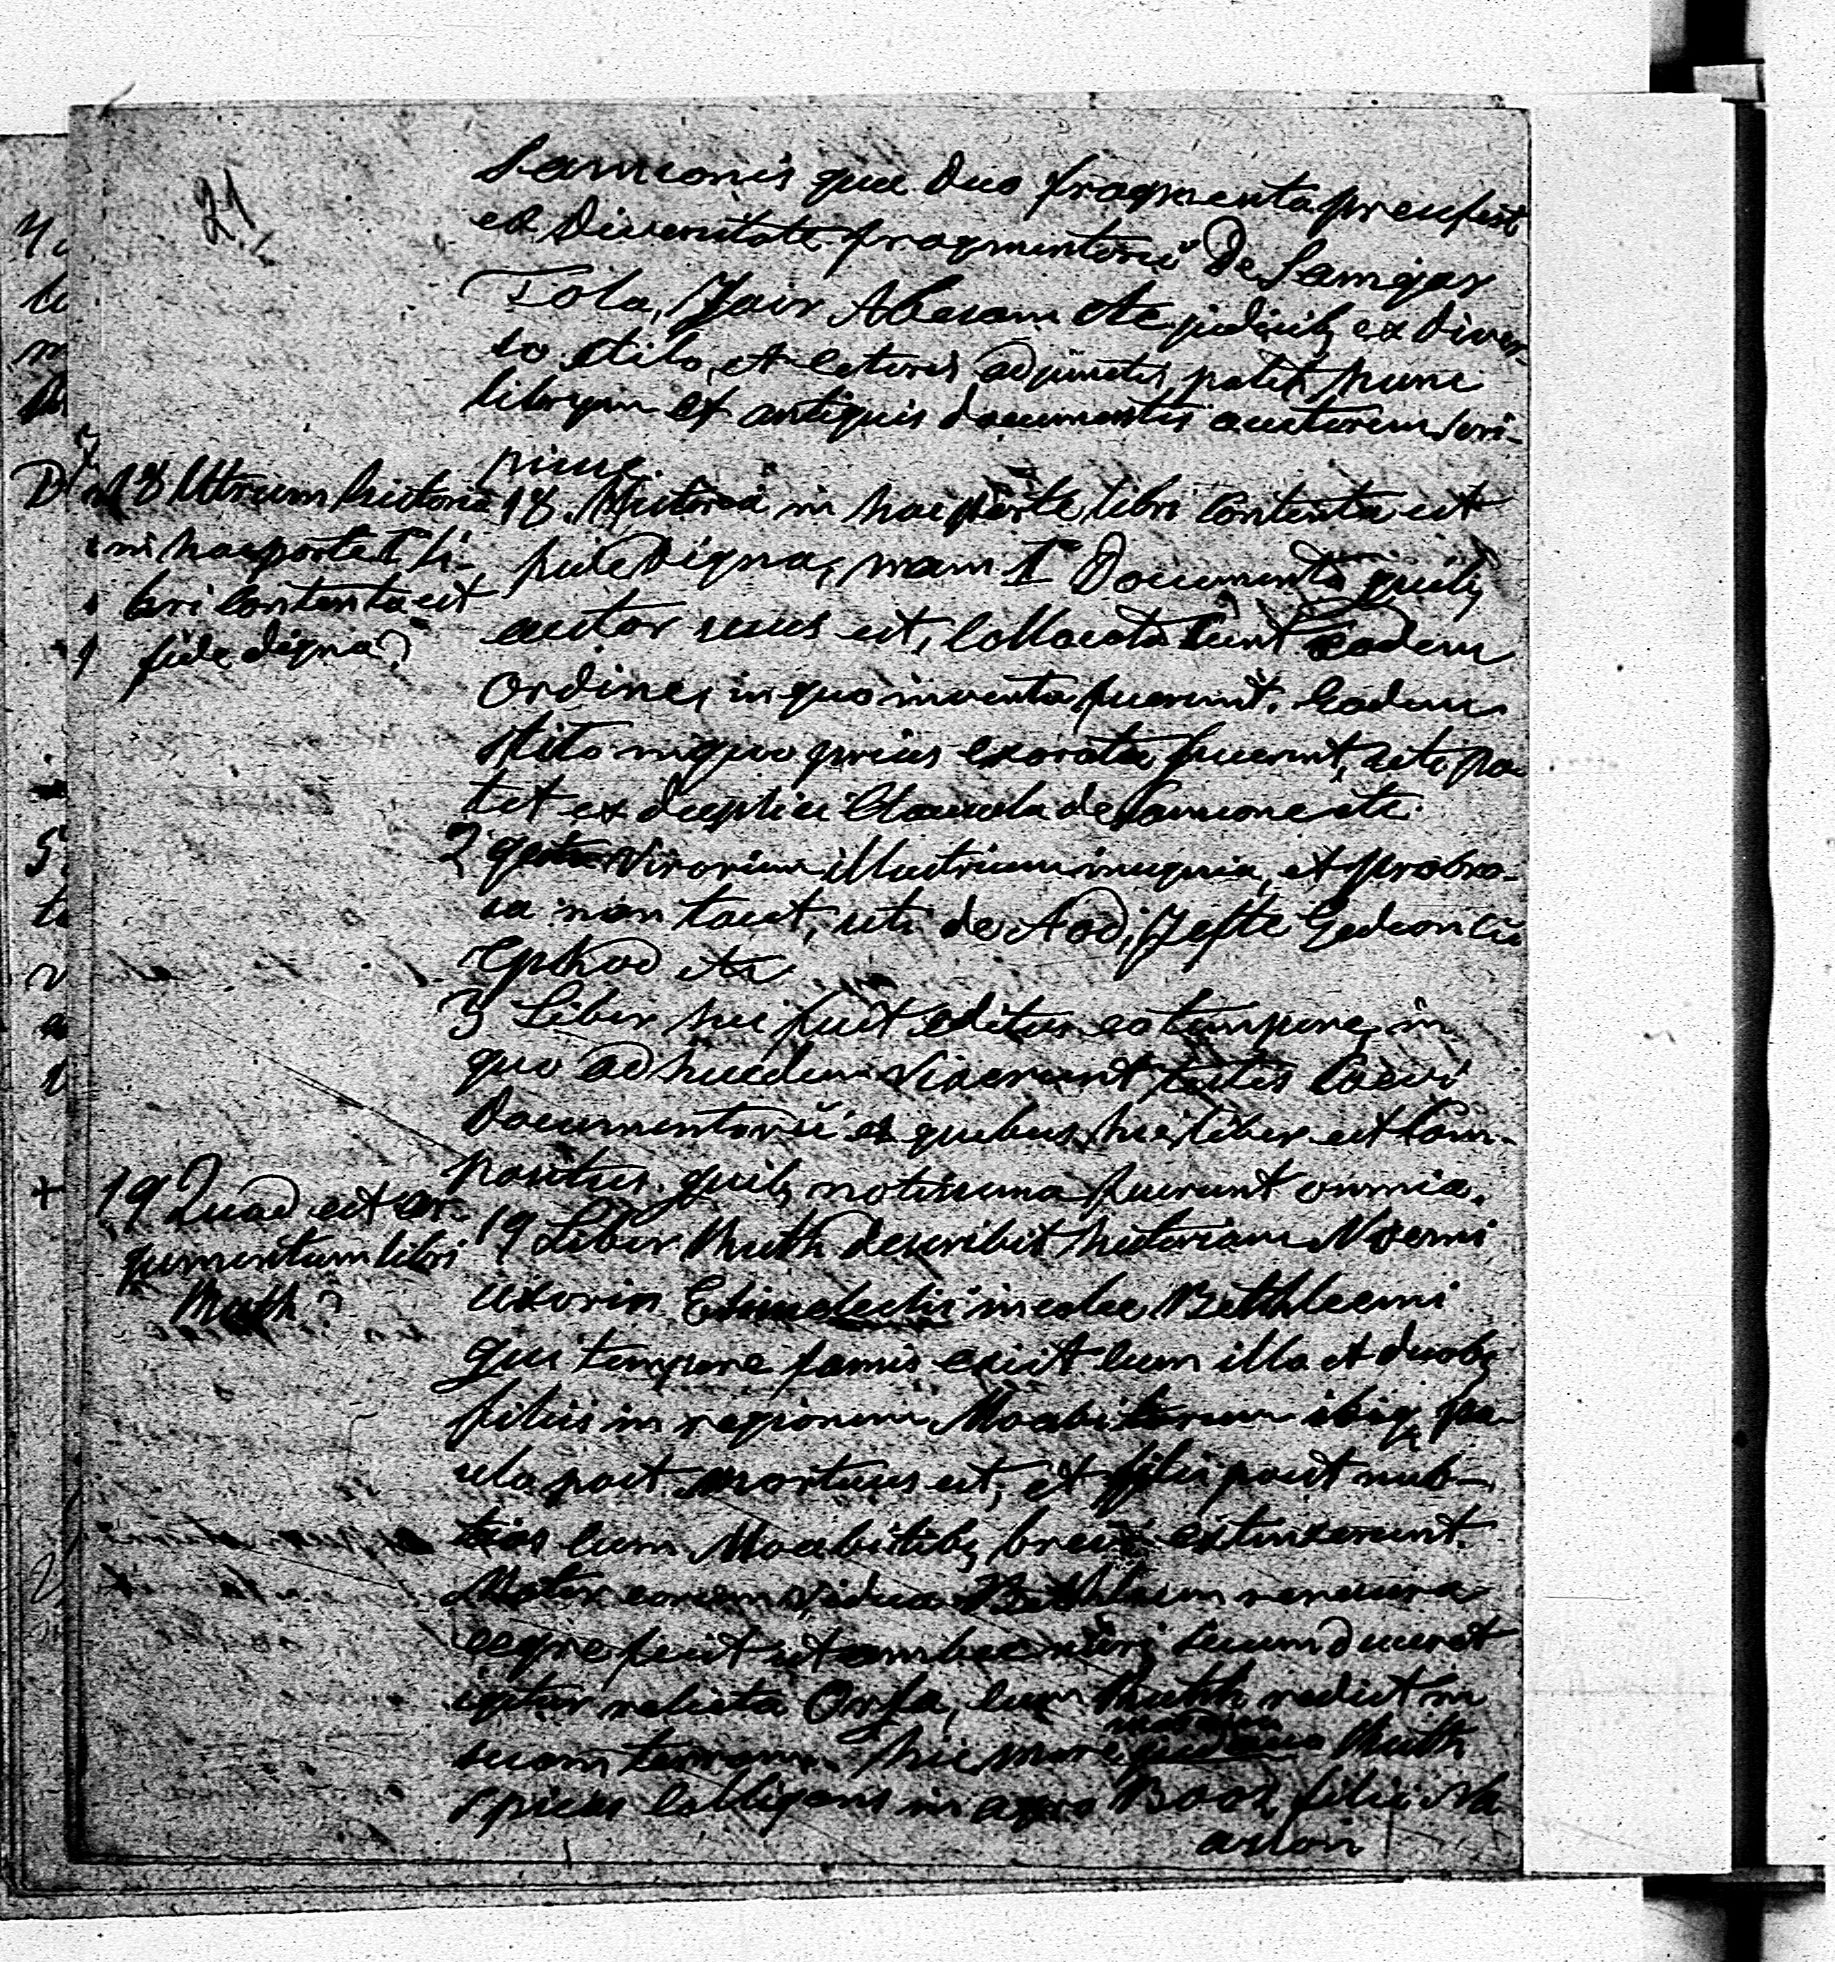 21
Samsonis quae duo fragmenta
ex diversitate fragmentorū de Samgar
Tola, Jair Abesam etc judicib, ex diver-
so stilo, et ceteris adjunctis patet hunc
librum ex antiquis documentis auctorem scri-
psisse.
18 Utrum historia
in hac parte li-
bri contenta est
fide digna?
18. Historia in hac parte libri contenta est
fide digna, nam 1 Documenta quib,
autor usus est, collocata sunt eodem
ordine, in quo inventa fuerunt. Eodem
stilo in quo prius exarata fuerunt, uti pa
tet ex duplici clausula de Samsone etc.
2 gesta virorum illustrium insignia, et probro-
sa non tacet, uti de Aod, Jefte Gedeon cū
Ephod etc
3 Liber hic fuit editus eo tempore, in
quo adhucdum vixerunt testes coevi
documentorū ex quibus hic liber est com-
positus. quib, notissima fuerunt omnia.
19 Quod est ar-
gumentum libri
Ruth?
19 Liber Ruth describit historiam Noemi
uxoris Elimelechi incolae Bethleemi
qui tempore famis exiit cum illa et duob,
filiis in regionem Moabitarum ibiq pa
ulo post mortuus est, et filii post nub-
tias cum Moabitib, brevi extinxerunt.
Mater eorum vidua Bethleem reversura
aegre fecit ut ambae nurus secum duceret
igitur relicta Orfa, cum Ruth rediit in
suam terram. hic more Ruth
spicas colligens in agro Booz filii Na
asson